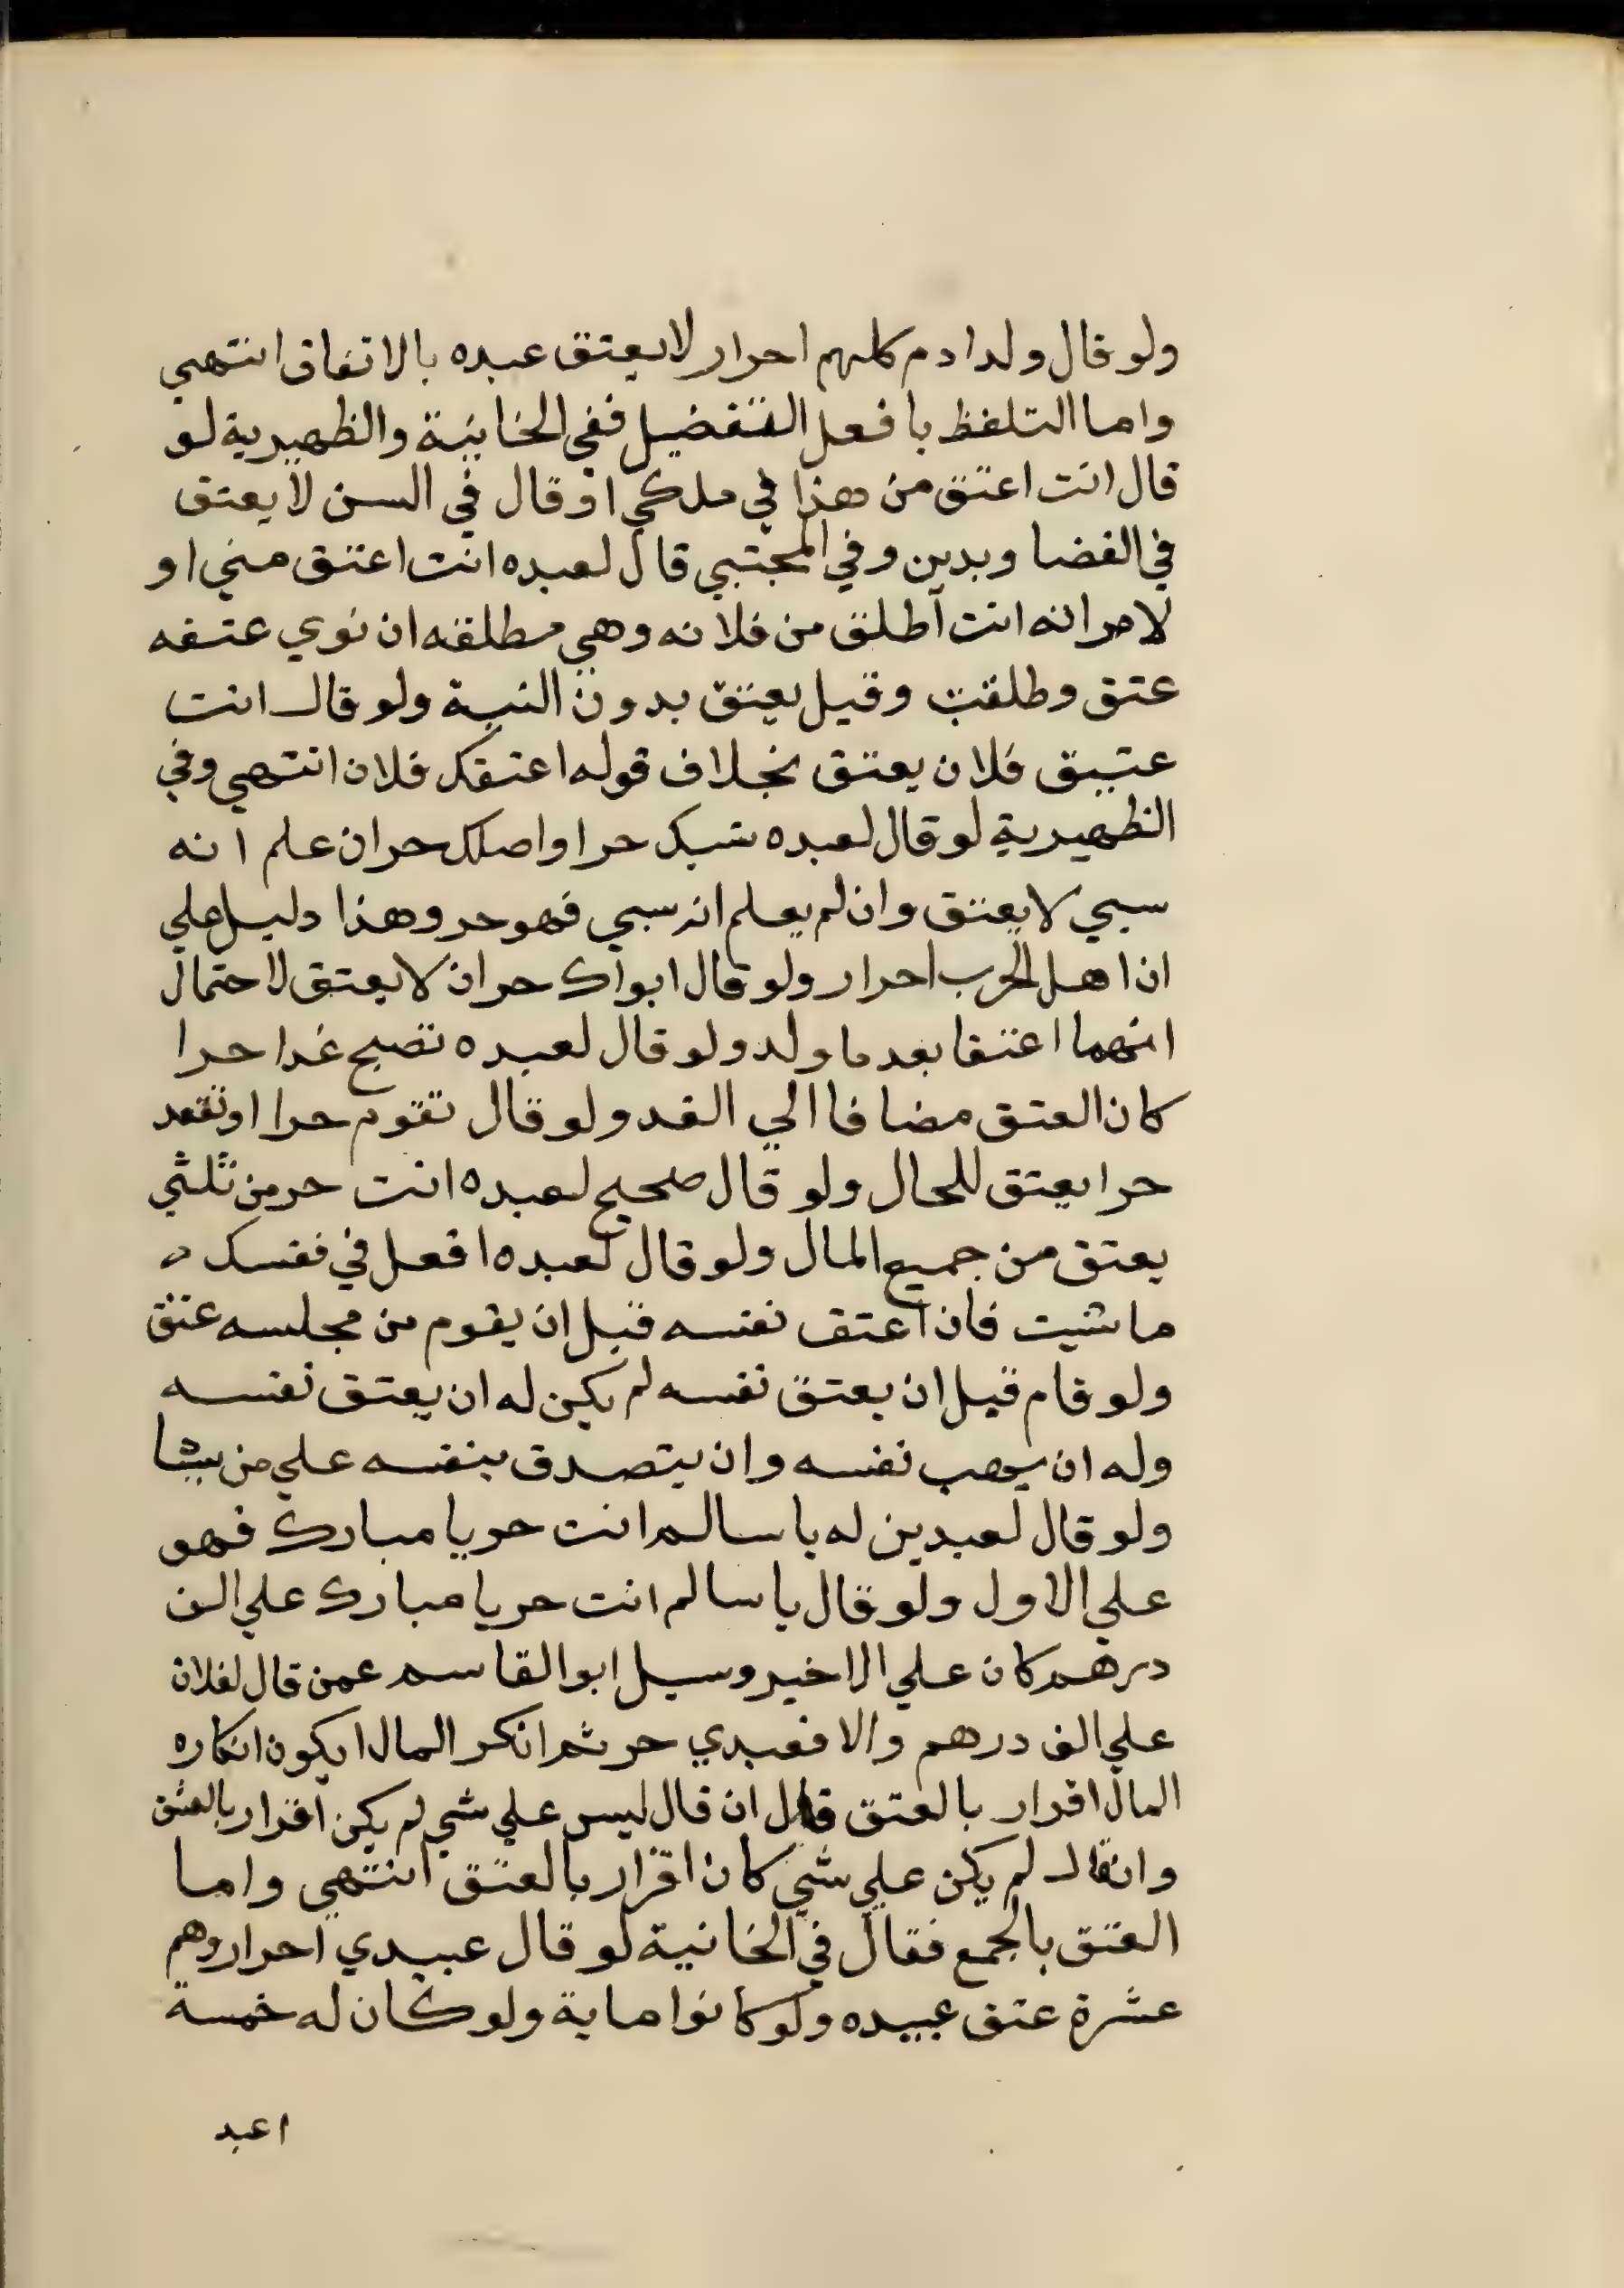 ولو قال ولد ادم كلهم احرار لا يعتق عبده بالاتفاق انتهي
واما التلفظ بافعل التفضيل ففي الخانية والظهيرية لو
قال انت اعتق من هذا في ملكي او قال في السن لا يعتق
في القضا ويدين وفي المجتبي قال لعبده انت اعتق مني او
لامراته انت اطلق من فلانه وهي مطلقه ان نوي عتقه
عتق وطلقت وقيل يعتق بدون النية ولو قال انت
عتيق فلان يعتق بخلاف قوله اعتقك فلان انتهي وفي
الظهيرية لو قال لعبده نسبك حر او اصلك حر ان علم انه
سبي لا يعتق وان لم يعلم انه سبي فهو حر وهذا دليل علي
ان اهل الحرب احرار ولو قال ابواك حران لا يعتق لاحتمال
انهما اعتقا بعد ما ولد ولو قال لعبده تصبح غدا حرا
كان العتق مضافا الي الغد ولو قال تقوم حرا او تقعد
حرا يعتق للحال ولو قال صحيح لعبده انت حر من ثلثي
يعتق من جميع المال ولو قال لعبده افعل في نفسك
ما شيت فان اعتق نفسه قبل ان يقوم من مجلسه عتق
ولو قام قبل ان يعتق نفسه لم يكن له ان يعتق نفسه
وله ان يهب نفسه وان يتصدق بنفسه علي من يشا
ولو قال لعبدين له يا سالم انت حر يا مبارك فهو
علي الاول ولو قال يا سالم انت حر يا مبارك علي الف
درهم كان علي الاخير وسيل ابو القاسم عمن قال لفلان
علي الف درهم والا فعبدي حر ثم انكر المال ايكون انكاره
المال اقرار بالعتق قال ان قال ليس علي شي لم يكن اقرار بالعتق
وان قال لم يكن علي شي كان اقرار بالعتق انتهي واما
العتق بالجمع فقال في الخانية لو قال عبيدي احرار وهم
عشرة عتق عبيده ولو كانوا ماية ولو كان له خمسة
اعبد